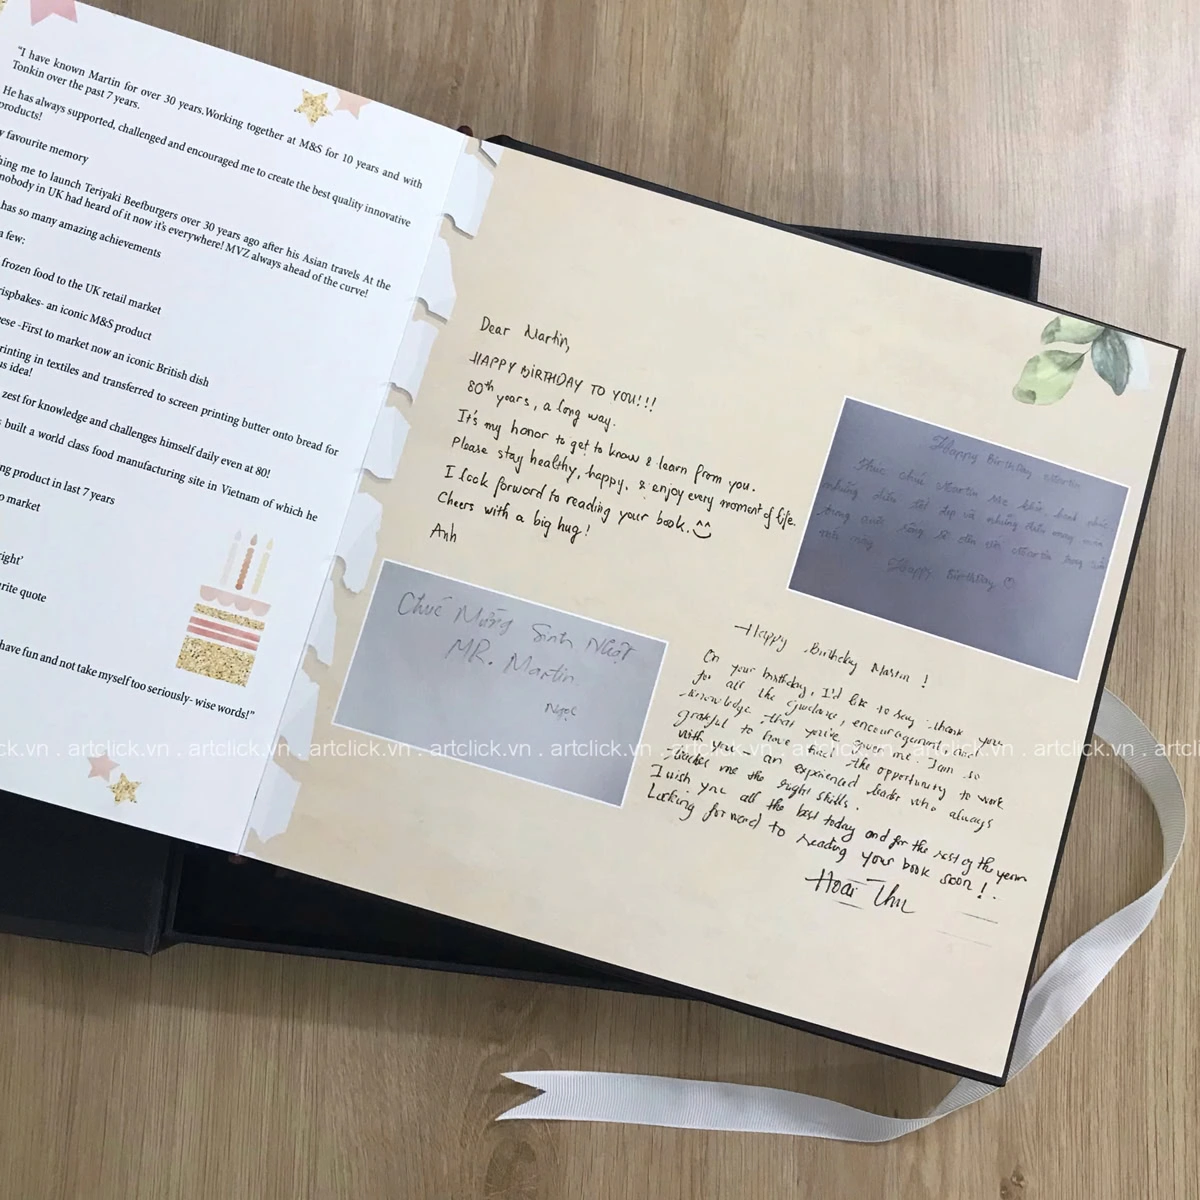 "I have known Martin for over 30 years.Working together at M&S for 10 years and with
Tonkin over the past 7 years.
He has always supported, challenged and encouraged me to create the best quality innovative
products!
favourite memory
me to launch Teriyaki Beefburgers over 30 years ago after his Asian travels At the
nobody in UK had heard of it now it's everywhere! MVZ always ahead of the curve!
has so many amazing achievements
a few:
frozen food to the UK retail market
- an iconic M&S product
-First to market now an iconic British dish
in textiles and transferred to screen printing butter onto bread for
idea!
zest for knowledge and challenges himself daily even at 80!
built a world class food manufacturing site in Vietnam of which he
product in last 7 years
market
quote
have fun and not take myself too seriously- wise words!"
Dear Martin,
HAPPY BIRTHDAY TO YOU!!!
80th years, a long way.
It's my honor to get to know & learn from you.
Please stay healthy, happy, & enjoy every moment of life.
I look forward to reading your book.
Cheers with a big hug!
Anh
Happy Birthday Martin
Chúc chú Martin
những điều tốt đẹp và những điều may mắn
trong cuộc sống sẽ đến với Martin trong
Happy Birthday
Chúc Mừng Sinh Nhật
MR. Martin
Ngọc
Happy Birthday Martin!
On your birthday, I'd like to say thank you
for all the guidance, encouragement, and
knowledge that you've given me. I am so
grateful to have had the opportunity to work
with you - an experienced leader who always
me the right skills.
I wish you all the best today and for the rest of the year
Looking forward to reading your book soon!
Hoài Thu
.vn . artclick.vn . artclick.vn . artclick.vn . artclick.vn . artclick.vn . artclick.vn . artclick.vn . artclick.vn . artclick.vn